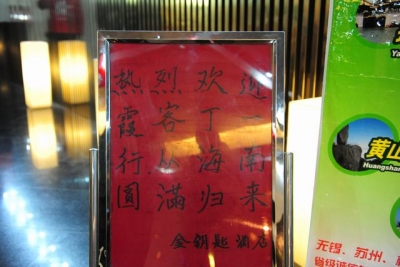 热烈欢迎
霞客丁一
行从海南
圆滿归来
金鑰匙酒店
黄山
Huangshan
无锡、苏州、
省级诚信